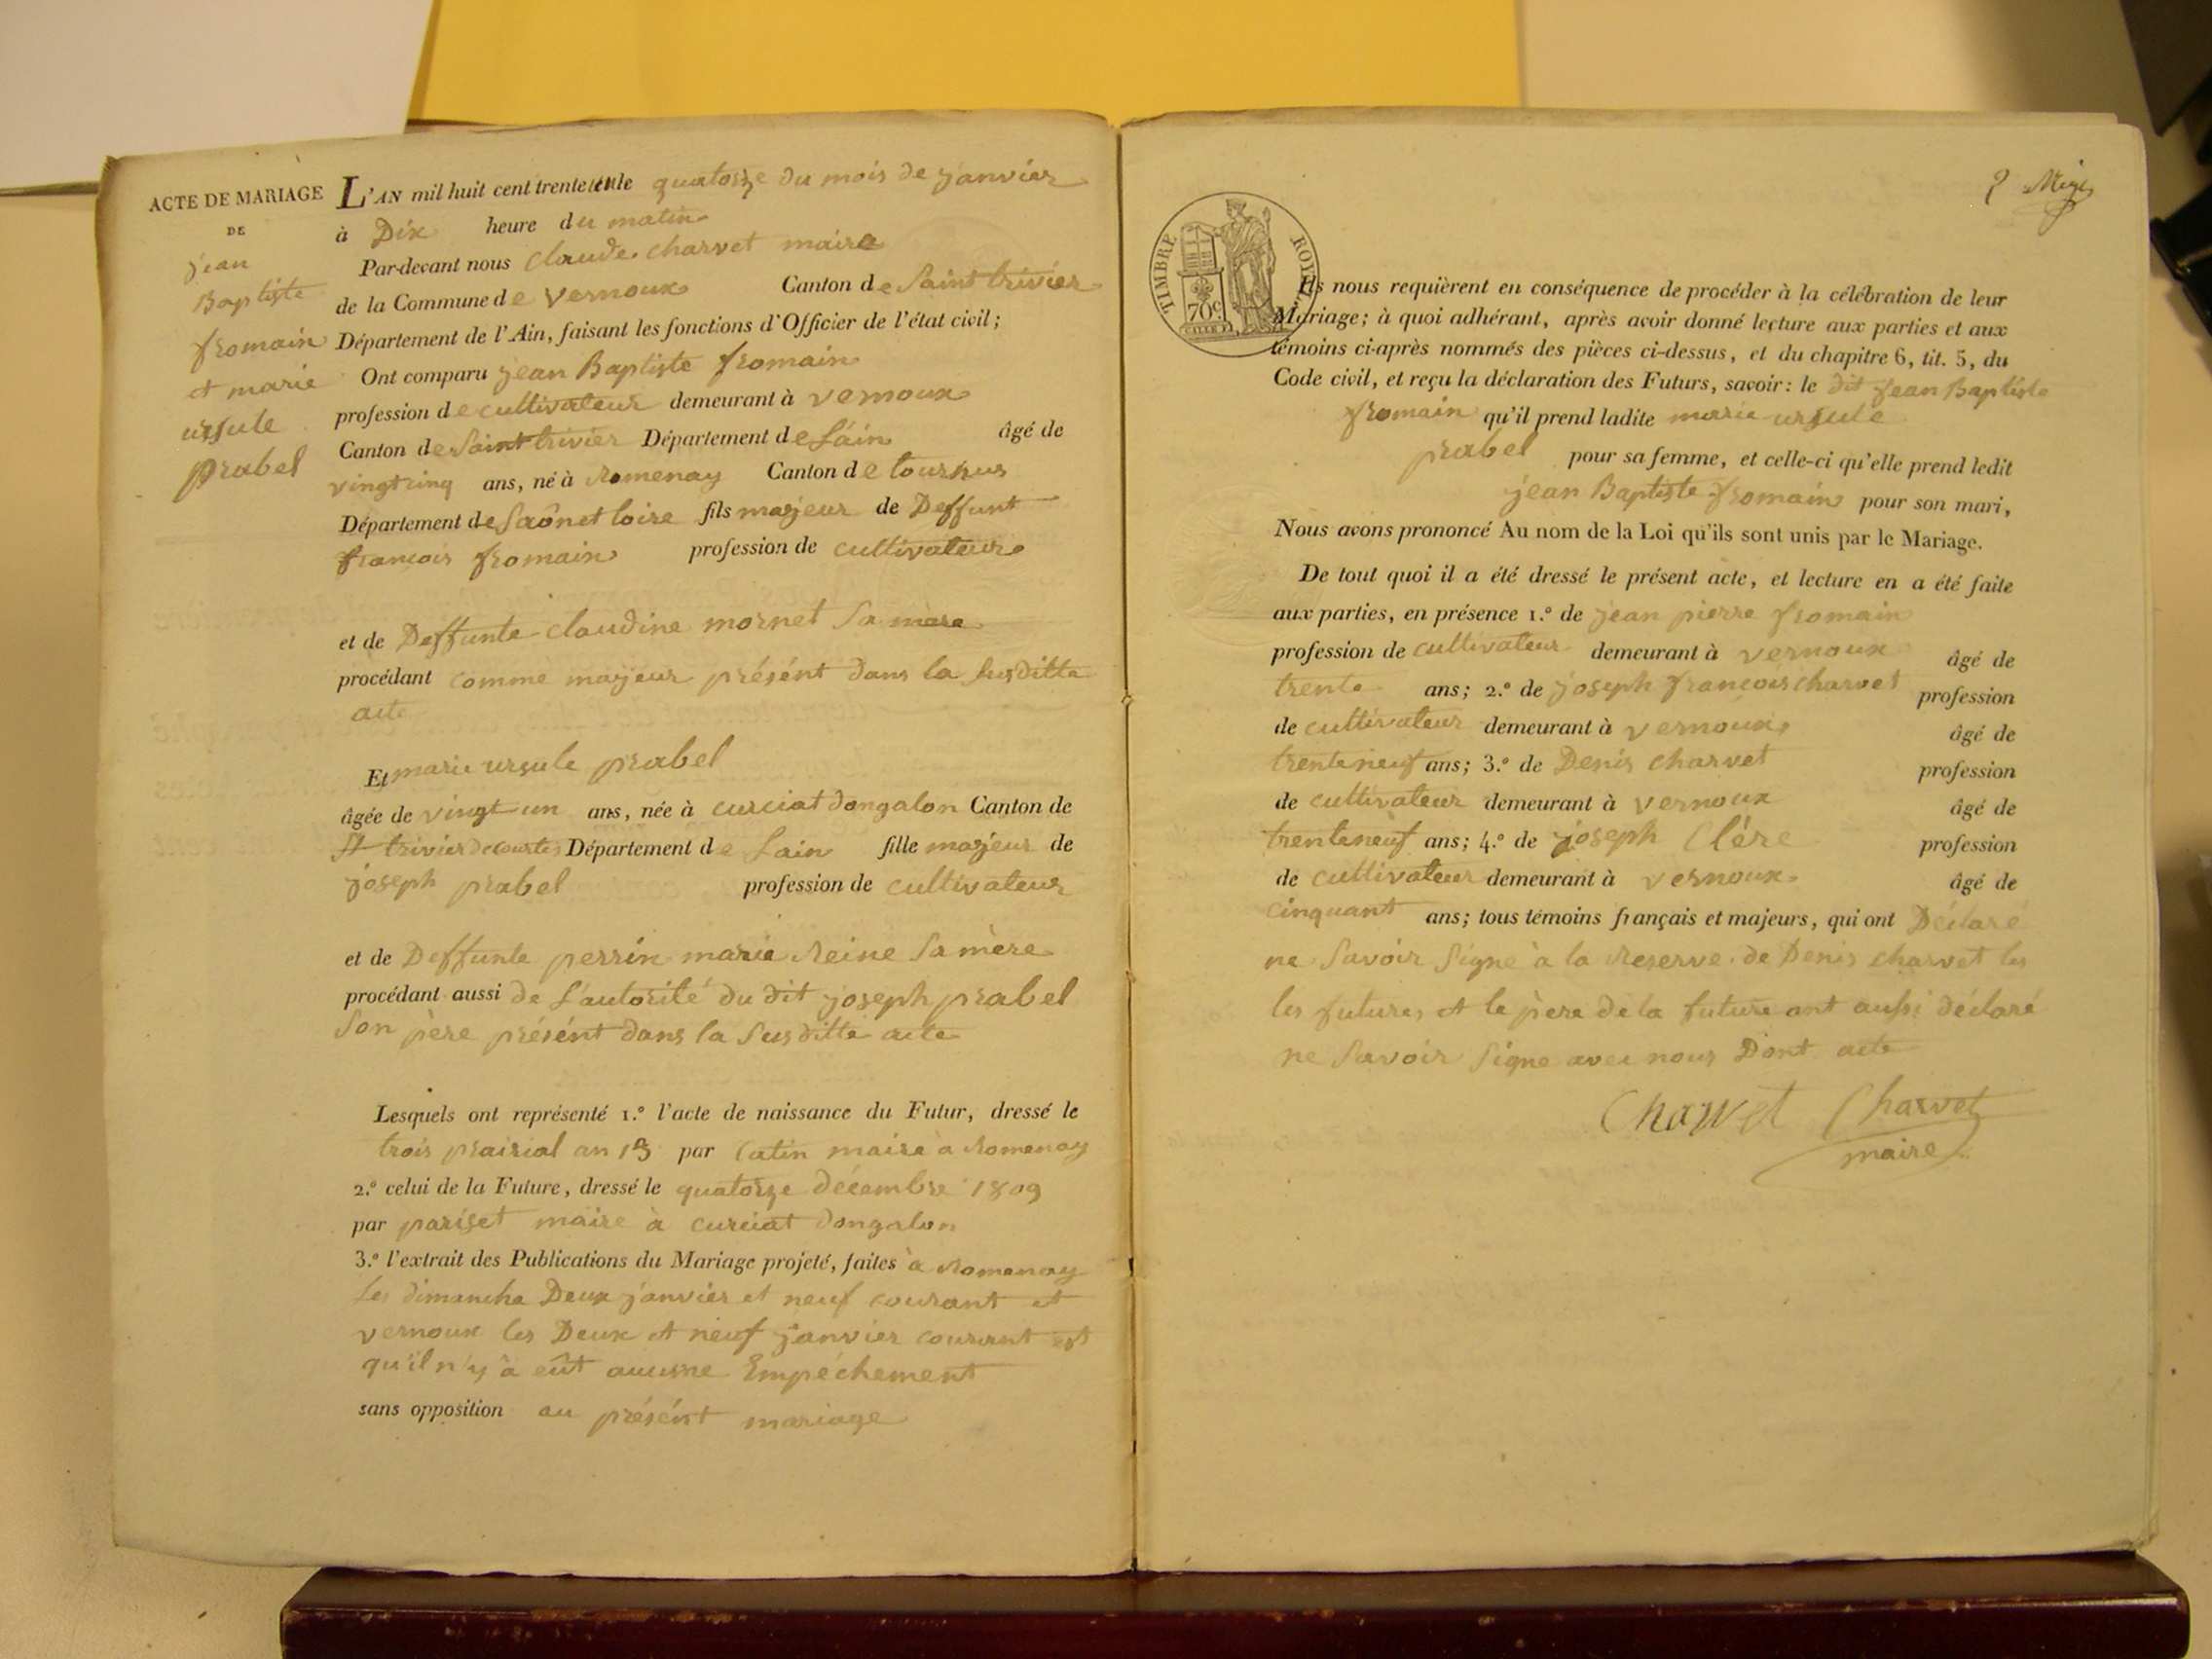 ACTE DE MARIAGE
DE
jean
Baptiste
fromain
et marie
ursule
prabel
L'AN mil huit cent trente le quatorze du mois de janvier
à Dix heure du matin
Par-devant nous claude charvet maire
de la Commune de vernoux Canton de Saint trivier
Département de l'Ain, faisant les fonctions d'Officier de l'état civil;
Ont comparu jean Baptiste fromain
profession de cultivateur demeurant à vernoux
Canton de Saint trivier Département de Láin âgé de
vingtcinq ans, né à Romenay Canton de tournus
Département de Saônet loire fils majeur de Deffunt
francois fromain profession de cultivateur
et de Deffunte claudine mornet Sa mère
procédant comme majeur présént dans la susditte
acte
Et marie ursule prabel
âgée de vingt un ans, née à curciat dongalon Canton de
St trivier de courtes Département de Lain fille majeur de
joseph prabel profession de cultivateur
et de Deffunte perrin marie Reine Sa mère
procédant aussi de L'autorité du dit joseph prabel
Son père présént dans la Susditte acte
Lesquels ont représenté 1.º l'acte de naissance du Futur, dressé le
trois prairial an 13 par Catin maire à Romenay
2.º celui de la Future, dressé le quatorze décembre 1809
par pariset maire à curciat dongalon
3.º l'extrait des Publications du Mariage projeté, faites à Romenay
Les dimanche Deux janvier et neuf courant et
vernoux les Deux et neuf janvier courant est
qu'il n'y à eût aucune Empéchement
sans opposition au présént mariage
TIMBRE ROYAL
70c
Ils nous requièrent en conséquence de procéder à la célébration de leur
Mariage; à quoi adhérant, après avoir donné lecture aux parties et aux
témoins ci-après nommés des pièces ci-dessus, et du chapitre 6, tit. 5, du
Code civil, et reçu la déclaration des Futurs, savoir: le dit jean Baptiste
fromain qu'il prend ladite marie ursule
prabel pour sa femme, et celle-ci qu'elle prend ledit
jean Baptiste fromain pour son mari,
Nous avons prononcé Au nom de la Loi qu'ils sont unis par le Mariage.
De tout quoi il a été dressé le présent acte, et lecture en a été faite
aux parties, en présence 1.º de jean pierre fromain
profession de cultivateur demeurant à vernoux âgé de
trente ans; 2.º de joseph francois charvet profession
de cultivateur demeurant à vernoux âgé de
trenteneuf ans; 3.º de Denis charvet profession
de cultivateur demeurant à vernoux âgé de
trenteneuf ans; 4.º de joseph Clére profession
de cultivateur demeurant à vernoux âgé de
cinquant ans; tous témoins français et majeurs, qui ont Déclaré
ne Savoir Signe à la Reserve de Denis charvet les
les futures et le père de la future ont aussi déclaré
ne Savoir Signe avec nous Dont acte
Charvet Charvet
maire